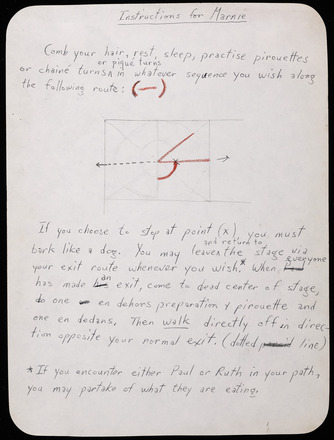 Instructions for Marnie
Comb your hair, rest, sleep, practise pirouettes
or pique turns
or chainé turns ∧ in whatever sequence you wish along
the following route: (—)
x
If you choose to stop at point (x), you must
bark like a dog. You may leave the stage via
and return to
your exit route whenever you wish.* When everyone
has made an exit, come to dead center of stage,
do one en dehors preparation & pirouette and
one en dedans. Then walk directly off in direc-
tion opposite your normal exit. (dotted line)
* If you encounter either Paul or Ruth in your path,
you may partake of what they are eating.